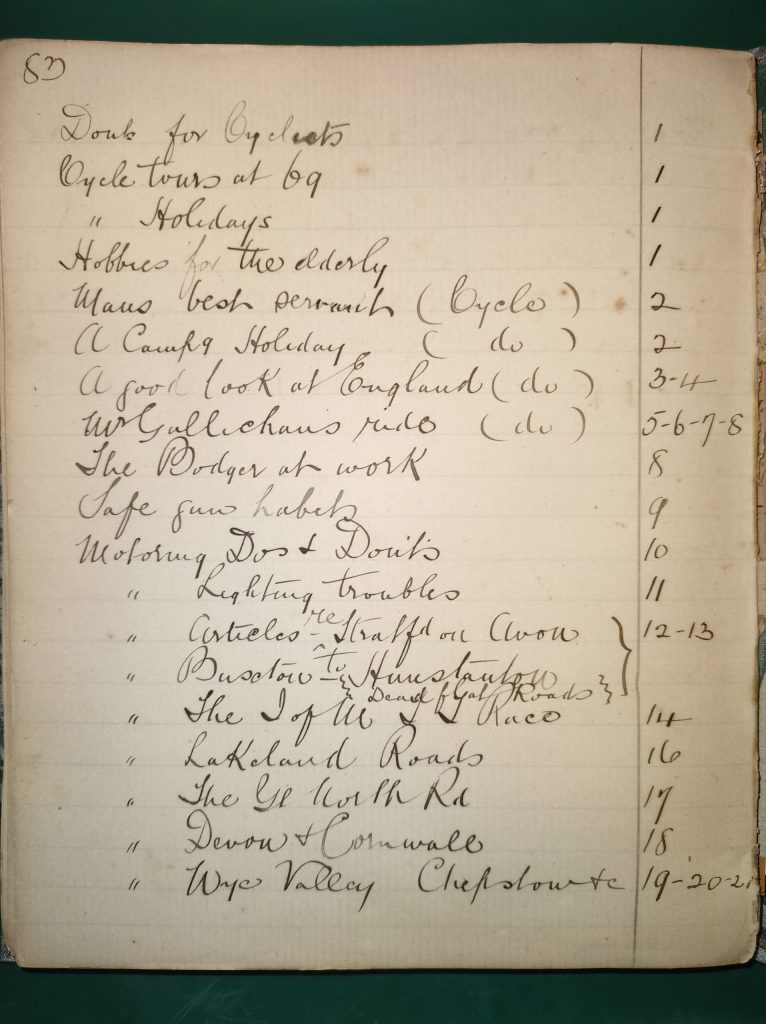 83
Donts for Cyclists 1
Cycle tours at 69 1
" Holidays 1
Hobbies for the elderly 1
Mans best servant (Cycle) 2
A Campg Holiday (do) 2
A good look at England (do) 3-4
Mr Gallichans ride (do) 5-6-7-8
The Bodger at work 8
Safe gun habits 9
Motoring Dos & Donts 10
" Lighting troubles 11
" Articles re Stratfd on Avon 12-13
" Buxton to Hunstanton
Dead Roads
" The I of M T T Race 14
" Lakeland Roads 16
" The Gt North Rd 17
" Devon & Cornwall 18
" Wye Valley Chepstow &c 19-20-21